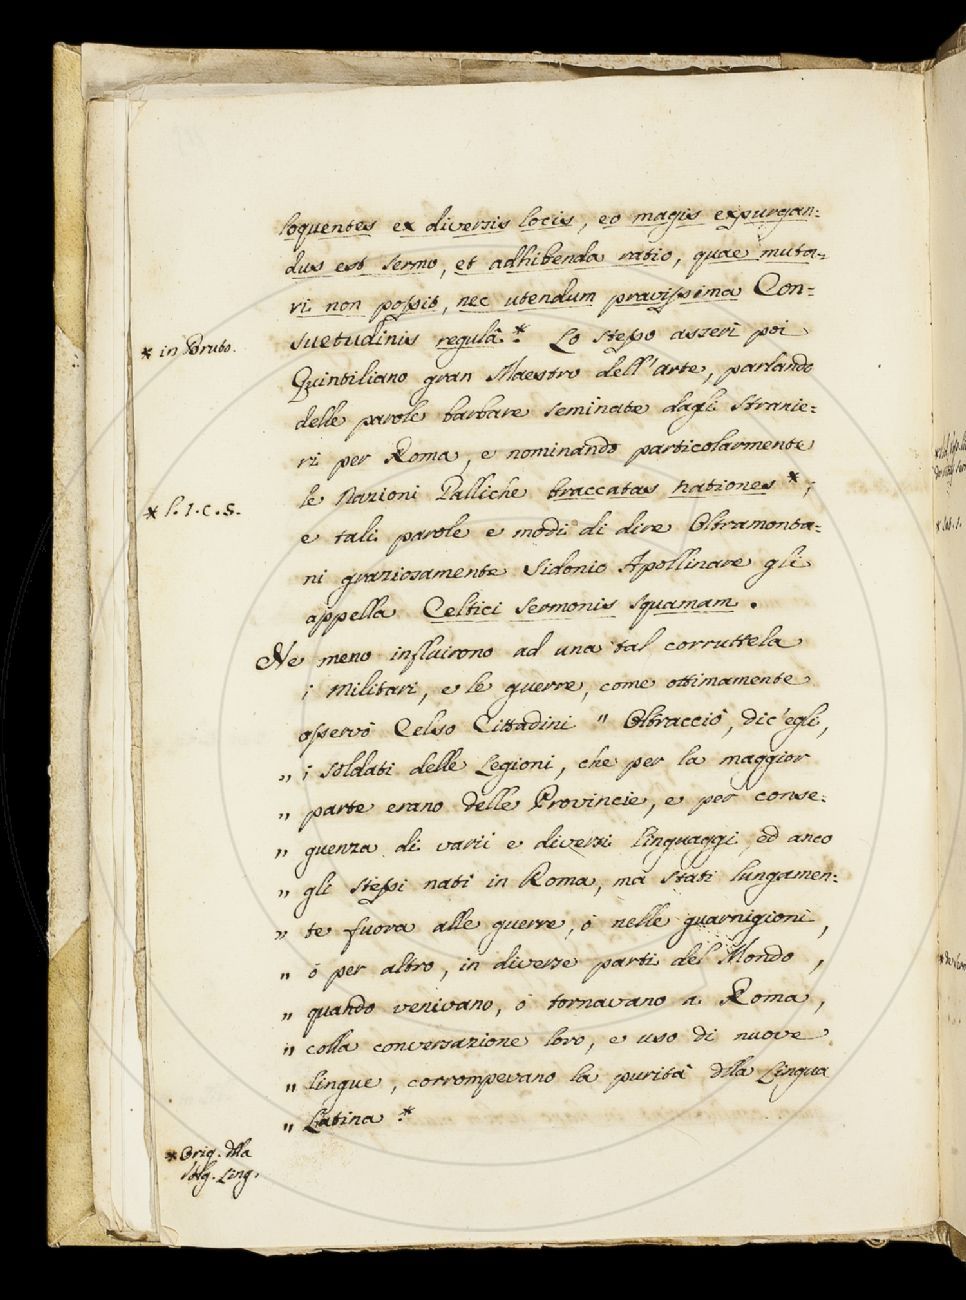 loquentes ex diversis locis, eo magis expurgan:
dus est sermo, et adhibenda ratio, quae muta:
ri non possit, nec utendum pravissima Con:
suetudinis regulâ.* Lo stesso asserì poi
* in Bruto.
Quintiliano gran Maestro dell'arte, parlando
delle parole barbare seminate dagli stranie:
ri per Roma, e nominando particolarmente
le Nazioni Galliche braccatas nationes *;
* l. 1. c. 5.
e tali parole e modi di dire Oltramonta:
ni graziosamente Sidonio Apollinare gli
appella Celtici sermonis squamam.
Ne meno influirono ad una tal corruttela
i Militari, e le guerre, come ottimamente
osservò Celso Cittadini " Oltracciò, dic'egli,
" i soldati delle Legioni, che per la maggior
" parte erano delle Provincie, e per conse:
" guenza di varii e diversi linguaggi, ed anco
" gli stessi nati in Roma, ma stati lungamen:
" te fuora alle guerre, ò nelle guarnigioni,
" ò per altro, in diverse parti del Mondo,
" quando venivano, ò tornavano a Roma,
" colla conversazione loro, e uso di nuove
" lingue, corrompevano la purità della Lingua
" Latina.*
* Orig. della
Volg. Ling.